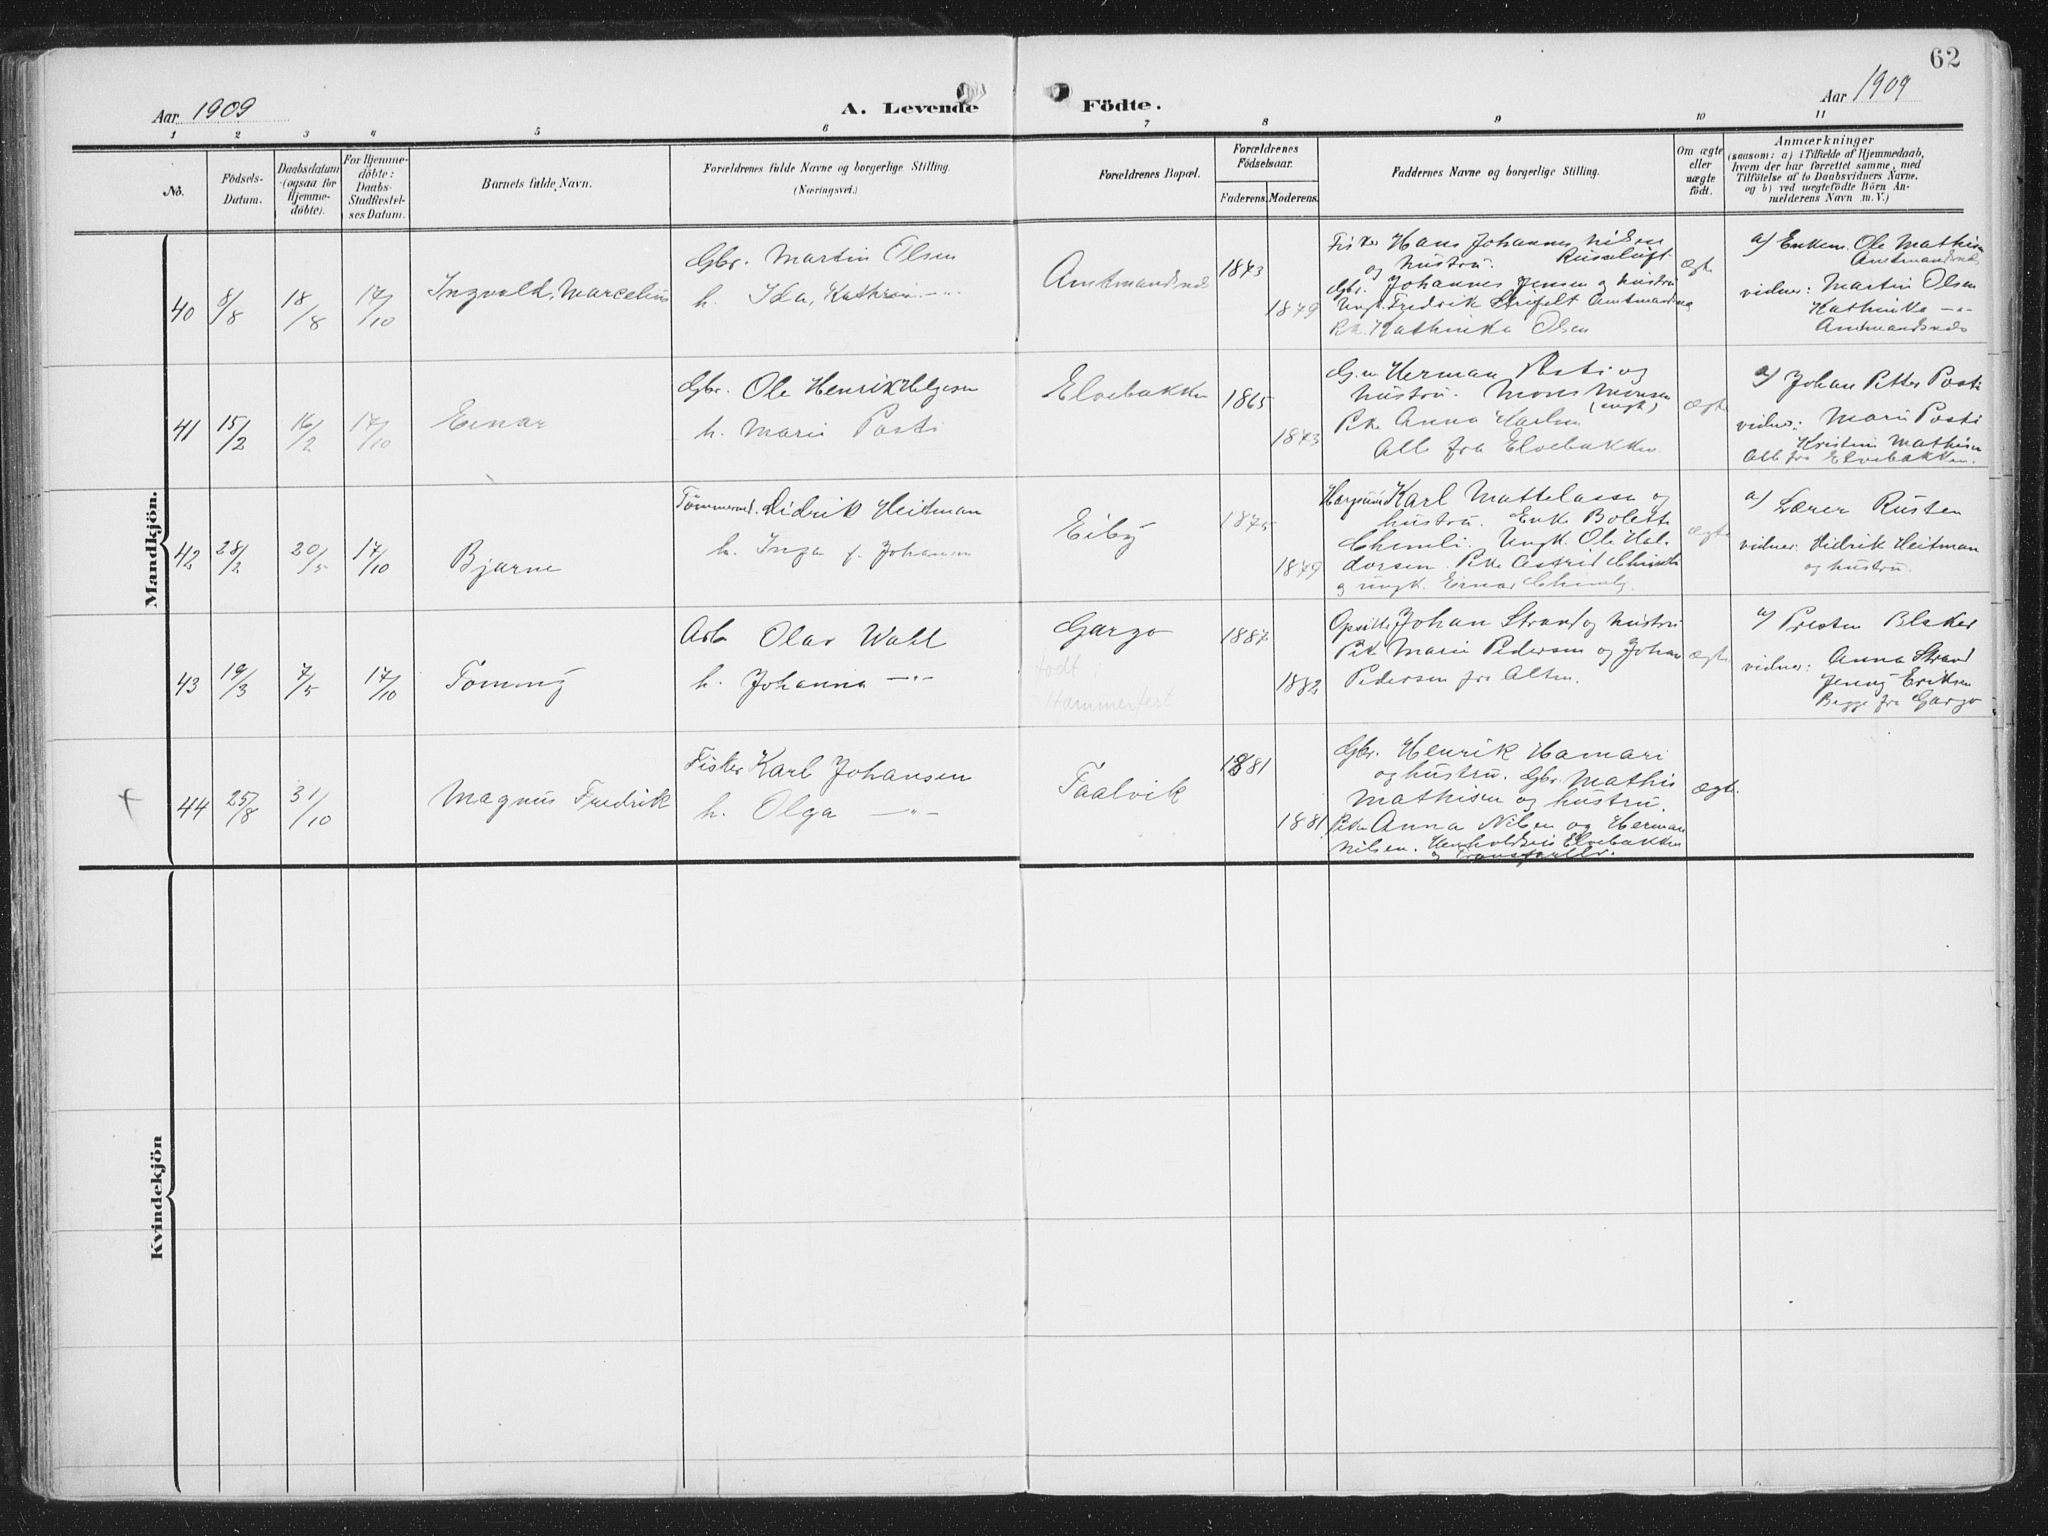 62
Aar 1909
A. Levende Födte.
Aar 1909
1 2 3 4 5 6 7 8 9 10 11
No.
Födsels-
Datum.
Daabsdatum
(ogsaa for
Hjemme-
döbte).
For Hjemme-
döbte:
Daabs-
Stadfæstel-
ses Datum.
Barnets fulde Navn.
Forældrenes fulde Navne og borgerlige Stilling.
(Næringsvei.)
Forældrenes Bopæl.
Forældrenes
Födselsaar.
Faderens. Moderens.
Faddernes Navne og borgerlige Stilling.
Om ægte
eller
uægte
födt.
Anmærkninger
(saasom: a) i Tilfælde af Hjemmedaab,
hvem der har forrettet samme, med
Tilföielse af to Daabsvidners Navne,
og b) ved uægtefödte Börn An-
melderens Navn m. V.)
Mandkjön.
40 8/8 18/8 17/10
Ingvald, Marcelius
Gbr. Martin Olsen
h. Ida, Kathrin —"—
Amtmandsnes
1873
1879
Fisker Hans Johannes Nilsen
og hustru. Russeluft
Gbr. Johannes Jensen og hustru
Ungk. Fredrik Strifelt Amtmandsnes
Pk. Kathinka Olsen
ægte
a) Enkem. Ole Mathisen
Amtmandsnes
vidner: Martin Olsen
Kathinka —"—
Amtmandsnes
41 15/2 16/2 17/10
Einar
Gbr. Ole Henrik Helgesen
h. Marie Posti
Elvebakken
1865
1873
G.m. Herman Posti og
hustru. Mons Monsen
(ungk)
Pike Anna Karlsen
Alle fra Elvebakken.
ægte
a) Johan Petter Posti
vidner: Marie Posti
Kristine Mathisen
Alle fra Elvebakken.
42 28/2 20/5 17/10
Bjarne
Tømmermd. Didrik Heitman
h. Inga f. Johansen
Eiby
1875
1879
Karl Mattelassa og
hustru. Enke Bolette
Ungk. Ole Hal-
dorsen. Pike Astrid
og ungk. Einar
ægte
a) Lærer Rusten
vidner: Didrik Heitman
og hustru.
43 19/3 7/5 17/10
Tommy
Arb Olav Wahl
h. Johanna —"—
Gargo
født i
Hammerfest
1887
1882
Opsitter Johan Strand og hustru
Pike Marie Pedersen og Johan
Pedersen fra Alten.
ægte
a) Presten Balke
vidner: Anna Strand
Jenny Eriksen
Begge fra Gargo
+
44 25/8 31/10
Magnus Fredrik
Fisker Karl Johansen
h. Olga —"—
Taalvik
1881
1881
Gbr. Henrik Hamari
og hustru. Gbr Mathis
Mathisen og hustru.
Pike Anna Nilsen og Herman
Nilsen. Henholdsvis Elvebakken
og Transfarelv.
ægte.
Kvindekjön